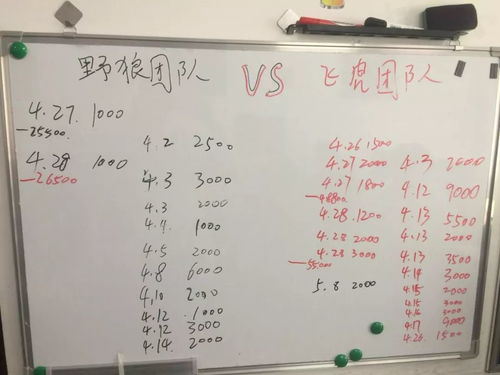 野狼团队 VS 飞虎团队
4.27. 1000
—25500.
4.28 1000
—26500
4.2 2500
4.3 3000
4.3 2000
4.4. 1000
4.5 2000
4.8 6000
4.10 2000
4.12 1000
4.12 3000
4.14. 2000
4.26 1500
4.27 2000
4.27 1800
—48800
4.28. 1200
4.28 2000
4.28 3000
—55000
5.8 2000
4.3 2000
4.12 9000
4.13 5500
4.13 2000
4.13 3500
4.14 3000
4.15 2000
4.15 3000
4.16 3000
4.17 9000
4.26 1500